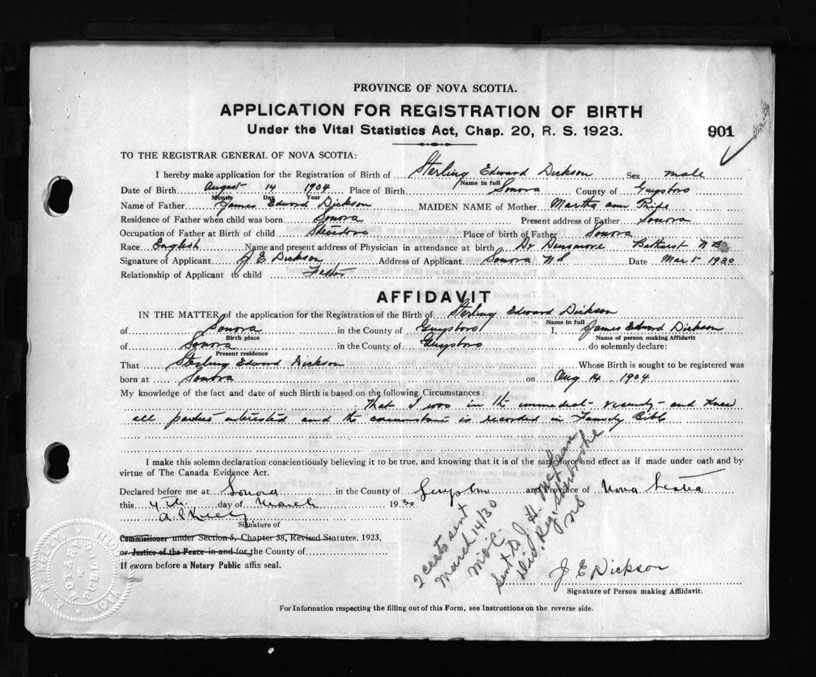 PROVINCE OF NOVA SCOTIA.
APPLICATION FOR REGISTRATION OF BIRTH
Under the Vital Statistics Act, Chap. 20, R. S. 1923.
901
TO THE REGISTRAR GENERAL OF NOVA SCOTIA:
I hereby make application for the Registration of Birth of Sterling Edward Dickson Sex male
Name in full
Date of Birth August 14 1904 Place of Birth Sonora County of Guysboro
Month Day Year
Name of Father James Edward Dickson MAIDEN NAME of Mother Martha Ann
Residence of Father when child was born Sonora Present address of Father Sonora
Occupation of Father at Birth of child Place of birth of Father Sonora
Race English Name and present address of Physician in attendance at birth Dr Densmore Bathurst N B
Signature of Applicant J E Dickson Address of Applicant Sonora N S Date Mar 5 1930
Relationship of Applicant to child Father
AFFIDAVIT
IN THE MATTER of the application for the Registration of the Birth of Sterling Edward Dickson
Name in full
of Sonora in the County of Guysboro I, James Edward Dickson
Birth place Name of person making Affidavit
of Sonora in the County of Guysboro do solemnly declare:
Present residence
That Sterling Edward Dickson Whose Birth is sought to be registered was
born at Sonora on Aug 14 1904
My knowledge of the fact and date of such Birth is based on the following Circumstances:
That I was in the immediate vicinity and knew
all parties interested and the circumstance is recorded in Family Bible
I make this solemn declaration conscientiously believing it to be true, and knowing that it is of the same and effect as if made under oath and by
virtue of The Canada Evidence Act.
Declared before me at Sonora in the County of Guysboro and Province of Nova Scotia
this 4th day of March 1930
Signature of
Commissioner under Section 5, Chapter 38, Revised Statutes, 1923,
or Justice of the Peace in and for the County of
If sworn before a Notary Public affix seal.
2 certs sent
March 14/30
Sent to J. H. McLean
Div. Reg. Sherbrooke
NS
J E Dickson
Signature of Person making Affidavit.
For Information respecting the filling out of this Form, see Instructions on the reverse side.